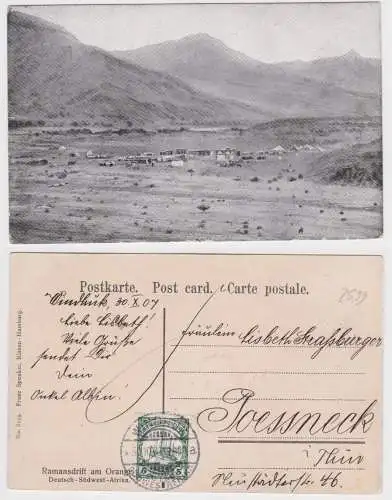 Postkarte. Post card. Carte postale.
Windhuk, 30. X. 07
Liebe Lisbeth!
Viele Grüsse
sendet Dir
Dein
Onkel
Fräulein
Lisbeth Straßburger
Poessneck
i/Thür
Neustädterstr. 46
2539
Franz Spenker, Hamburg.
Ramansdrift am Oranje
Deutsch-Südwest-Afrika.
5 5